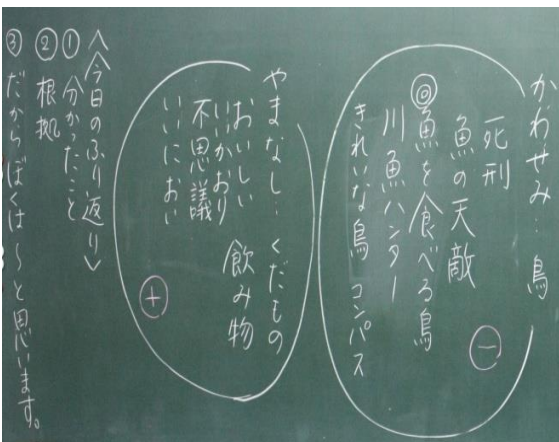 かわせみ…鳥
死刑
魚の天敵
㋺魚を食べる鳥
川魚ハンター
きれいな鳥 コンパス
−
やまなし…くだもの
おいしい 飲み物
いいかおり
不思議
いいにおい
+
<今日のふり返り>
① 分かったこと
② 根拠
③ だからぼくは~と思います。